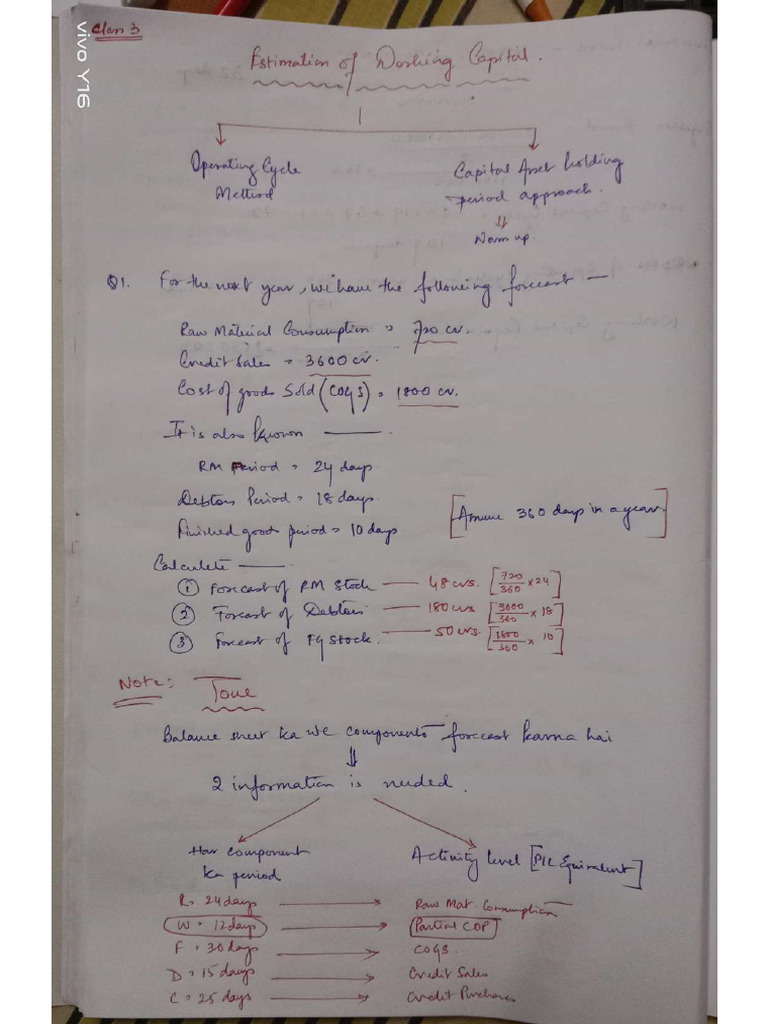 vivo Y16
Class 3
Estimation of Working Capital.
Operating Cycle
Method
Capital Asset holding
period approach.
⇓
Warm up.
Q1. For the next year, we have the following forecast —
Raw Material Consumption = 720 cr.
Credit Sales = 3600 cr.
Cost of goods Sold (COGS) = 1800 cr.
It is also known ———
RM Period = 24 days
Debtors Period = 18 days.
Finished goods period = 10 days
[Assume 360 days in a year]
Calculate ———
① Forecast of RM Stock — 48 crs. [720/360 × 24]
② Forecast of Debtors — 180 crs [3600/360 × 18]
③ Forecast of FG Stock. — 50 crs. [1800/360 × 10]
Note:
Balance sheet ka WC components forecast karna hai
⇓
2 information is needed.
Har component
ka period
Activity level [P/L Equivalent]
R = 24 days → Raw Mat. Consumption
W = 12 days → Partial COP
F = 30 days → COGS.
D = 15 days → Credit Sales
C = 25 days → Credit Purchases